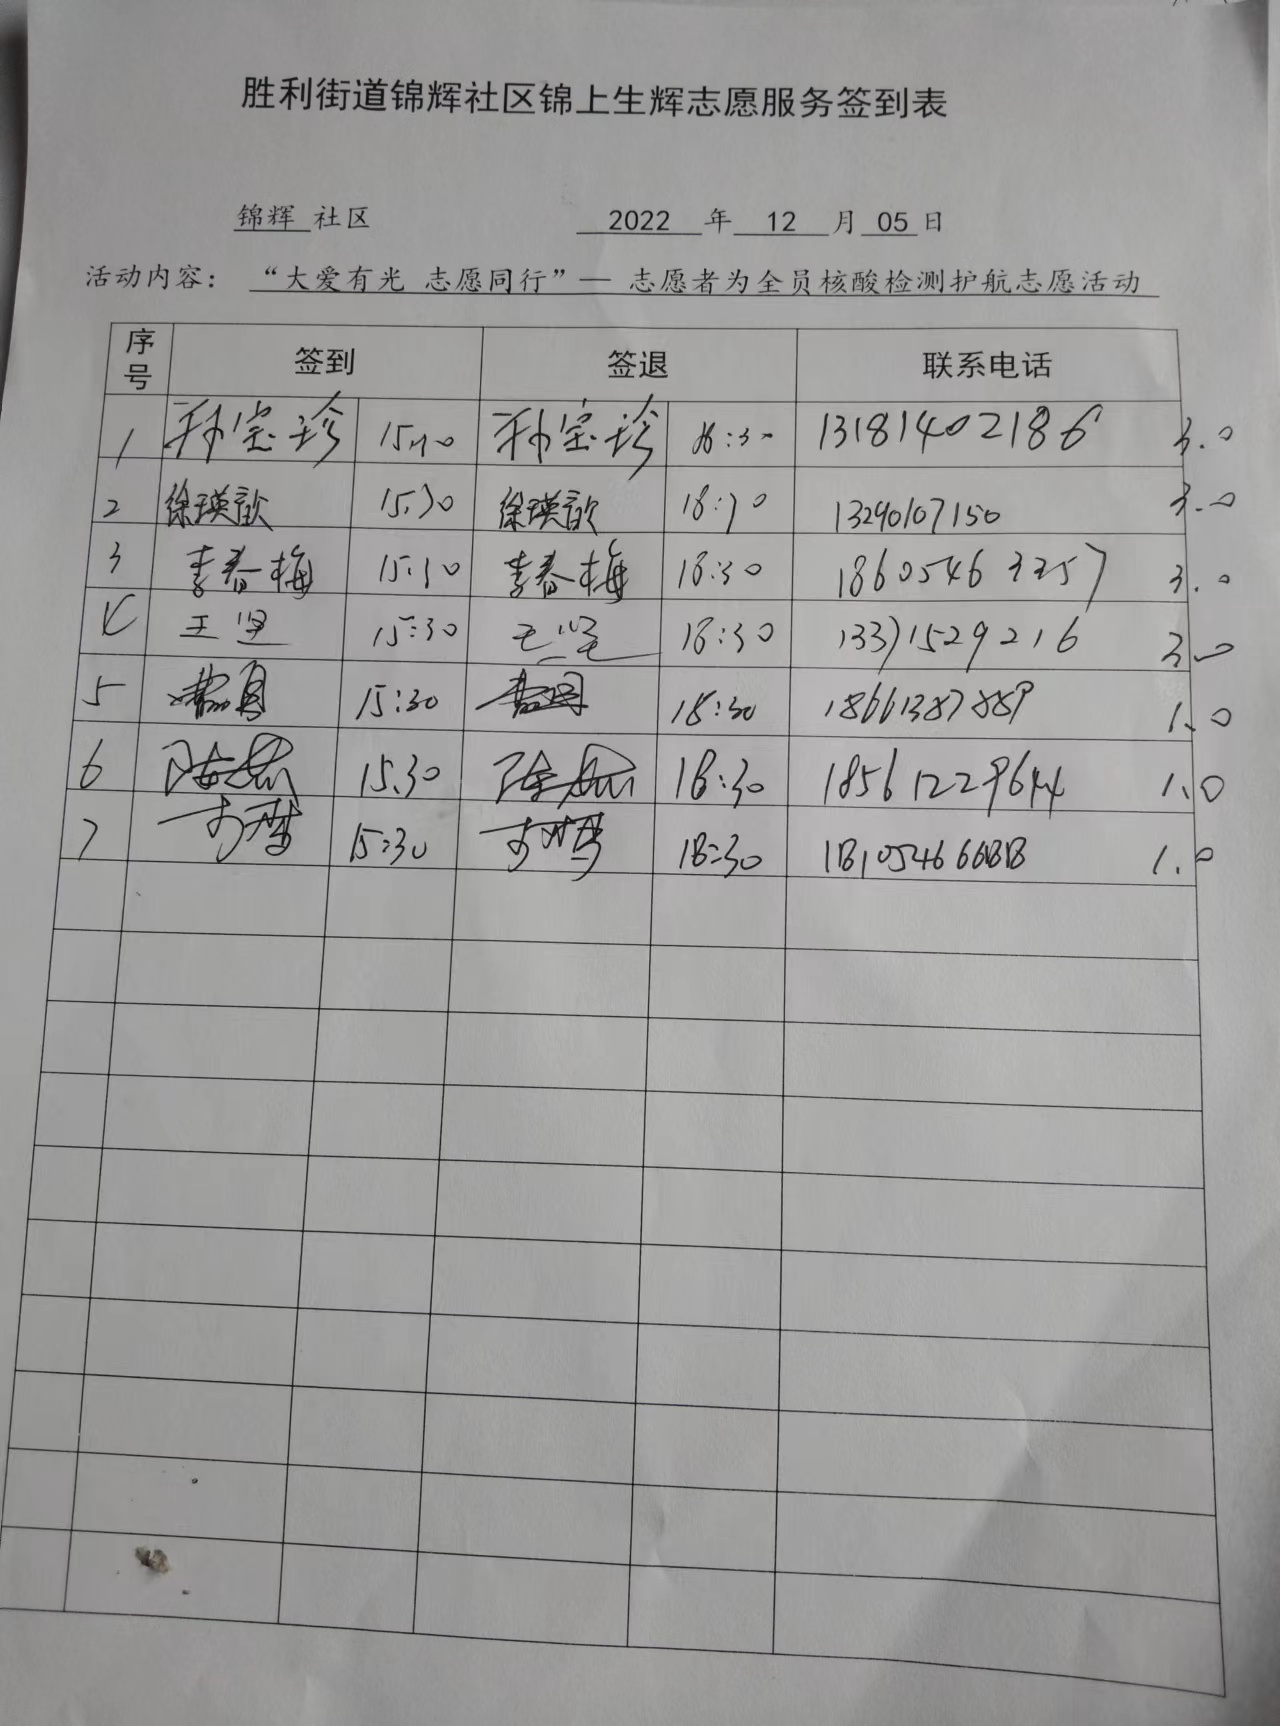 胜利街道锦辉社区锦上生辉志愿服务签到表
锦辉 社区 2022 年 12 月 05 日
活动内容： “大爱有光 志愿同行”— 志愿者为全员核酸检测护航志愿活动
序号 签到 签退 联系电话
1 孙宝珍 孙宝珍 13181402186 3.0
2 徐瑛歆 15:30 徐瑛歆 18:30 13290107150 3.0
3 李春梅 15:30 李春梅 18:30 18605463257 3.0
4 王坚 15:30 王坚 18:30 13371529216 3.0
5 15:30 18:30 1.0
6 15:30 18:30 18561229644 1.0
7 15:30 18:30 18105466688 1.0